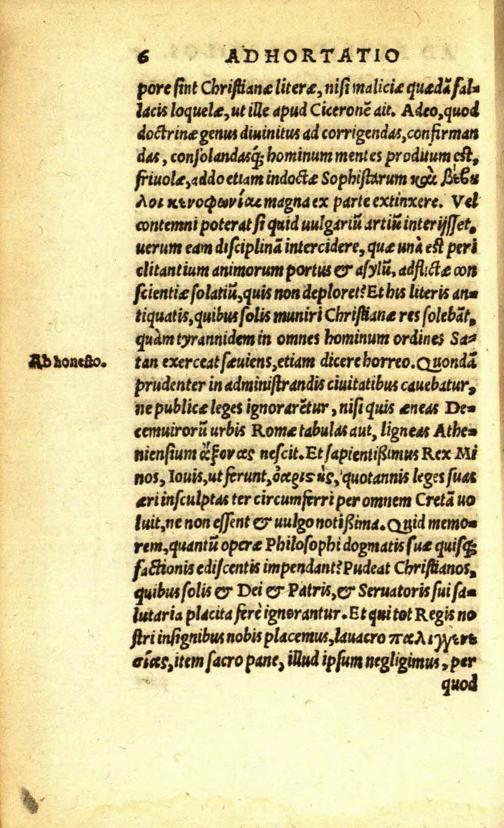 6 ADHORTATIO
pore sint Christianæ literæ, nisi maliciæ quædã fal=
lacis loquelæ, ut ille apud Ciceronẽ ait. Adeo, quod
doctrinæ genus diuinitus ad corrigendas, confirman
das, consolandasq́; hominum mentes proditum est,
friuolæ, addo etiam indoctæ Sophistarum καὶ βέβη
λοι κενοφωνίαι magna ex parte extinxere. Vel
contemni poterat si quid uulgariũ artiũ interijsset,
uerum eam disciplinã intercidere, quæ una est peri
clitantium animorum portus & asylũ, adflictæ con
scientiæ solatiũ, quis non deploret? Et his literis an=
tiquatis, quibus solis muniri Christianæ res solebãt,
quàm tyrannidem in omnes hominum ordines Sa=
Ab honesto.
tan exerceat sæuiens, etiam dicere horreo. Quondã
prudenter in administrandis ciuitatibus cauebatur,
ne publicæ leges ignorarẽtur, nisi quis æneas De=
cemuirorũ urbis Romæ tabulas aut, ligneas Athe=
niensium ἄξονας nescit. Et sapientißimus Rex Mi
nos, Iouis, ut ferunt, ὀαριστὺς, quotannis leges suas
æri insculptas ter circumferri per omnem Cretã uo
luit, ne non essent & uulgo notißima. Quid memo=
rem, quantũ operæ Philosophi dogmatis suæ quisq́;
factionis ediscentis impendant? Pudeat Christianos,
quibus solis & Dei & Patris, & Seruatoris sui sa=
lutaria placita ferè ignorantur. Et qui tot Regis no
stri insignibus nobis placemus, lauacro παλιγγενε
σίας, item sacro pane, illud ipsum negligimus, per
quod